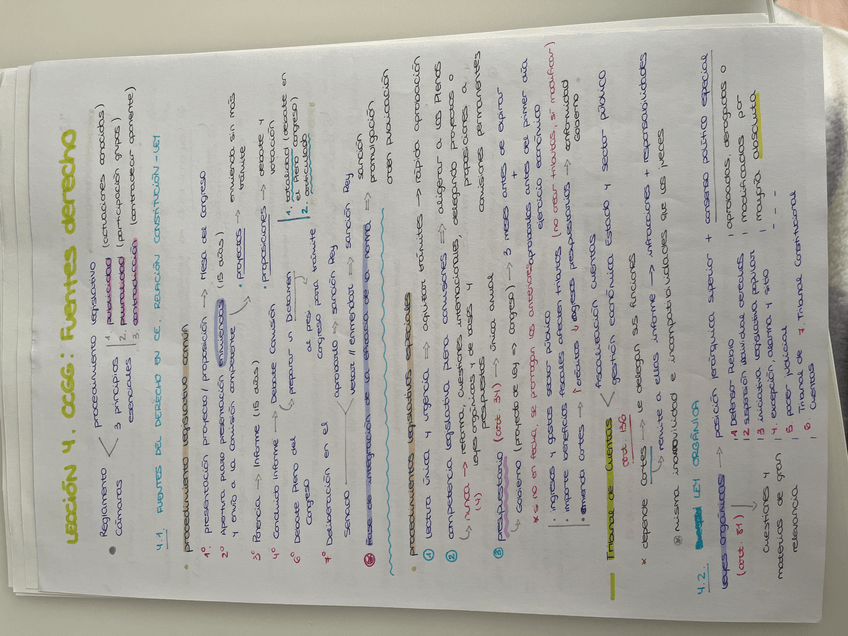 LECCIÓN 4. CCGG: Fuentes derecho
Reglamento Cámaras
procedimiento legislativo
3 principios esenciales
1. publicidad (actuaciones conocidas)
2. pluralidad (participación grupos)
3. contradicción (contradecir oponente)
4.1 FUENTES DEL DERECHO EN CE. RELACIÓN CONSTITUCIÓN-LEY
· procedimiento legislativo común
1º presentación proyecto/proposición → Mesa del Congreso
2º Apertura plazo presentación enmiendas (15 días)
y envío a la comisión competente
· proyectos → enmienda sin más trámite
· proposiciones → debate y votación
3º Ponencia → Informe (15 días)
1. totalidad (debate en el Pleno Congreso)
2. articulado
4º Concluido informe → Debate Comisión
preparar un Dictamen
6º Debate Pleno del Congreso
al pres. Congreso para trámite
7º Deliberación en el Senado
aprobarlo → sanción Rey
vetar // enmendar → sanción Rey
Fase de integración de la eficacia de la norma →
sanción
promulgación
orden publicación
· procedimientos legislativos especiales
① Lectura única y urgencia → agilizar trámites → rápida aprobación
② competencia legislativa plena comisiones → aligerar a los Plenos
↳ nunca → reforma, cuestiones internacionales, delegando proyectos o
(4) leyes orgánicas y de bases y proposiciones a
presupuestos comisiones permanentes
③ presupuestario (art. 34) → única anual
↳ Gobierno (proyecto de ley → congreso) → 3 meses antes de expirar
+
* si no en fecha, se prorrogan los anteriores
aprobarlos antes del primer día
ejercicio económico
· ingresos y gastos sector público
· importe beneficios fiscales afecten tributos (no crear tributos, sí modificar)
· enmienda cortes → ↑ créditos ↓ ingresos presupuestarios → conformidad Gobierno
Tribunal de Cuentas
art. 136
fiscalización cuentas
gestión económica Estado y sector público
* depende Cortes → le delegan sus funciones
↳ remite a ellas informe → infracciones + responsabilidades
misma inamovilidad e incompatibilidades que los jueces
4.2. LEY ORGÁNICA
Leyes orgánicas → posición jerárquica superior + consenso político especial
(art. 81)
cuestiones y
materias de gran
relevancia
1 Defensor Pueblo
2 suspensión individual derechos
3 iniciativa legislativa popular
4. excepción, alarma y sitio
5 poder judicial
6 Tribunal de Cuentas
7. Tribunal Constitucional
aprobadas, derogadas o
modificadas por
mayoría absoluta